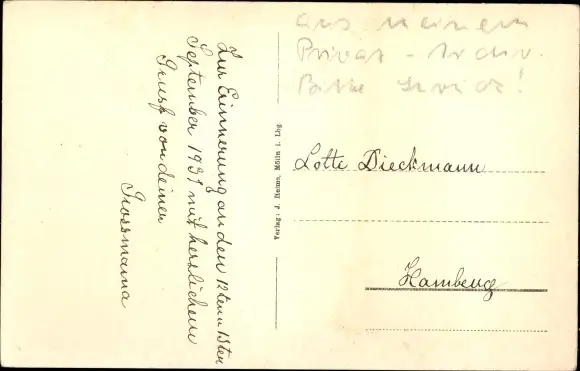 Zur Erinnerung an den 12ten u 13ten
September 1931 mit herzlichem
Gruss von deiner
Grossmama
Verlag: J. Heims, Mölln i. Lbg.
aus meinem
Privat-Archiv.
Bitte zurück!
Lotte Dieckmann
Hamburg